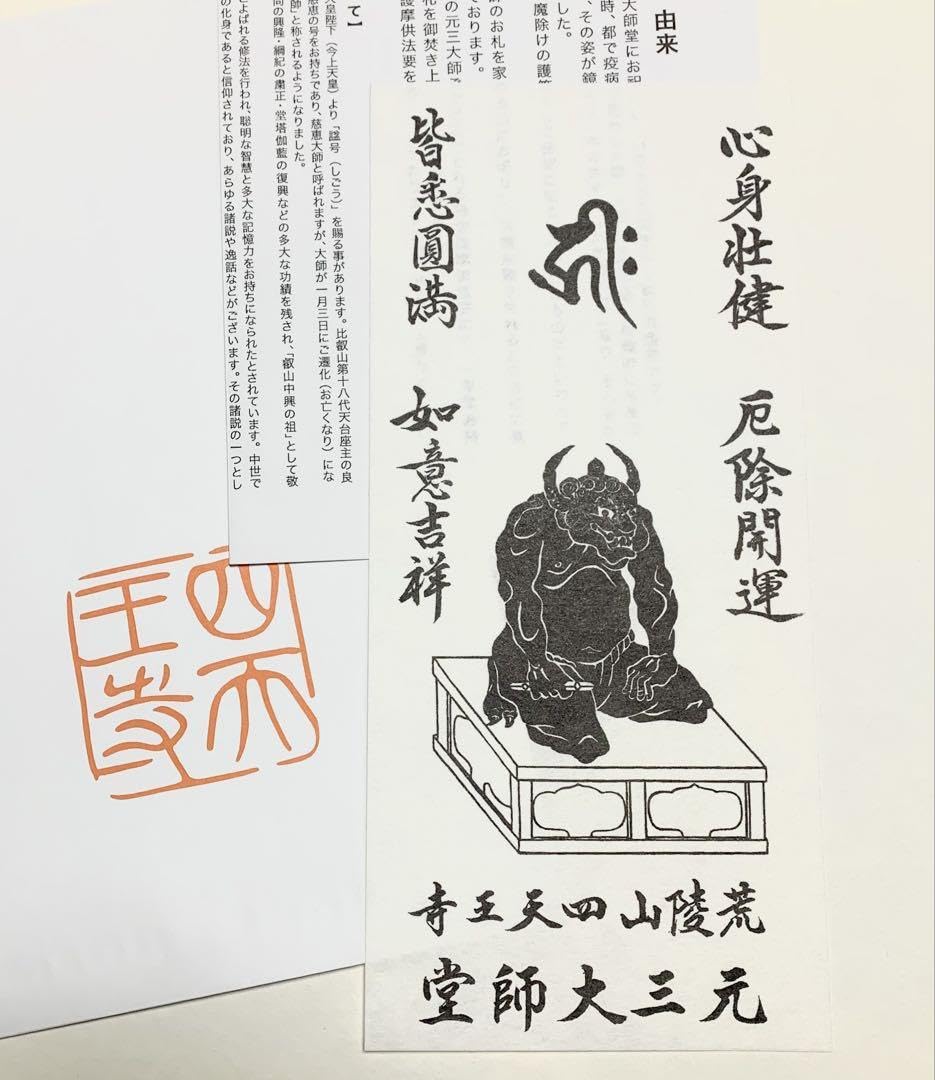 由来
大師堂にお祀
時、都で疫病
、その姿が鏡
魔除けの護符
した。
のお札を家
ております。
の元三大師ご
札を御焚き上
護摩供法要を
て】
天皇陛下（今上天皇）より「諡号（しごう）」を賜る事があります。比叡山第十八代天台座主の良
慈恵の号をお持ちであり、慈恵大師と呼ばれますが、大師が一月三日にご遷化（お亡くなり）にな
師」と称されるようになりました。
問の興隆・綱紀の粛正・堂塔伽藍の復興などの多大な功績を残され、「叡山中興の祖」として敬
とよばれる修法を行われ、聡明な智慧と多大な記憶力をお持ちになられたとされています。中世で
の化身であると信仰されており、あらゆる諸説や逸話などがございます。その諸説の一つとし
心身壮健
厄除開運
皆悉圓満
如意吉祥
荒陵山四天王寺
元三大師堂
四天
王寺